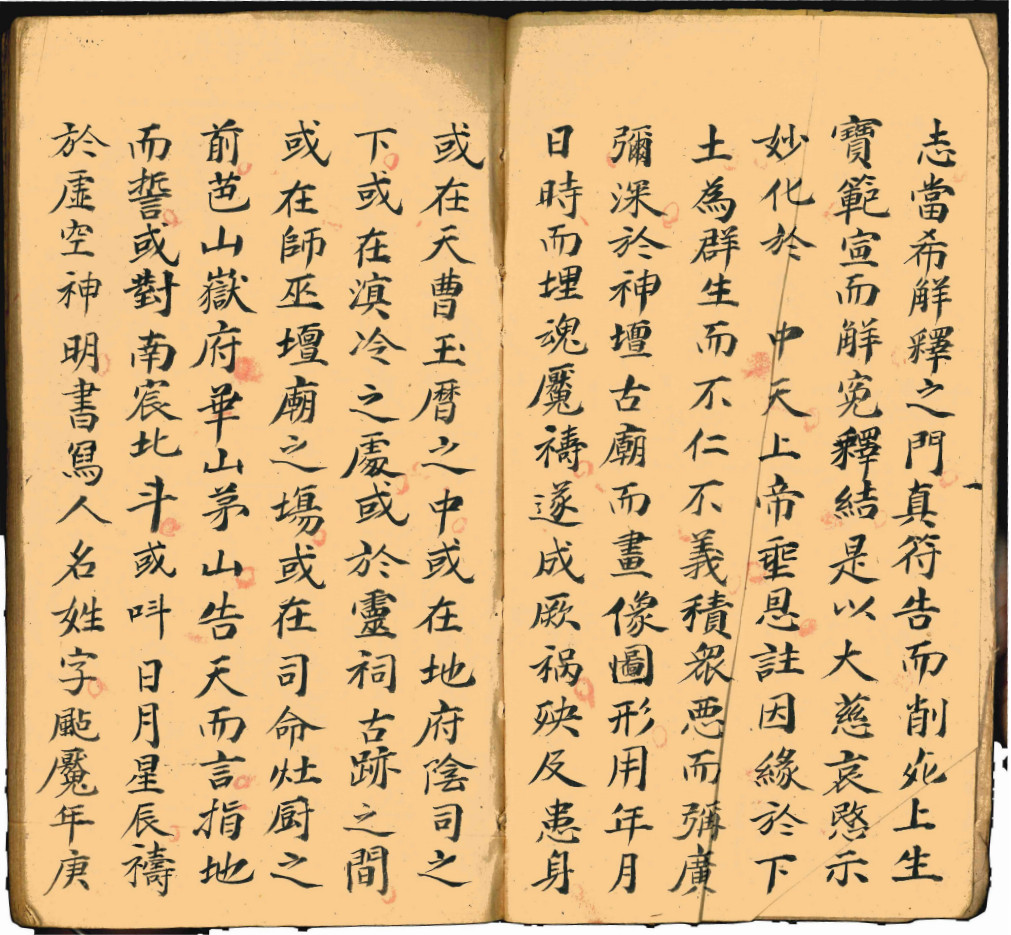 志當希解釋之門真符告而削死上生
寶範宣而解寃釋結是以大慈哀愍示
妙化於 中天上帝垂恩註因緣於下
土為群生而不仁不義積衆悪而彌廣
彌深於神壇古廟而畫像圖形用年月
日時而埋魂魘禱遂成厥禍殃及患身
或在天曹玉曆之中或在地府陰司之
下或在滇冷之處或於靈祠古跡之間
或在師巫壇廟之塲或在司命灶厨之
前芭山嶽府華山茅山告天而言指地
而誓或對南宸北斗或呌日月星辰禱
於虛空神明書冩人名姓字魘年庚